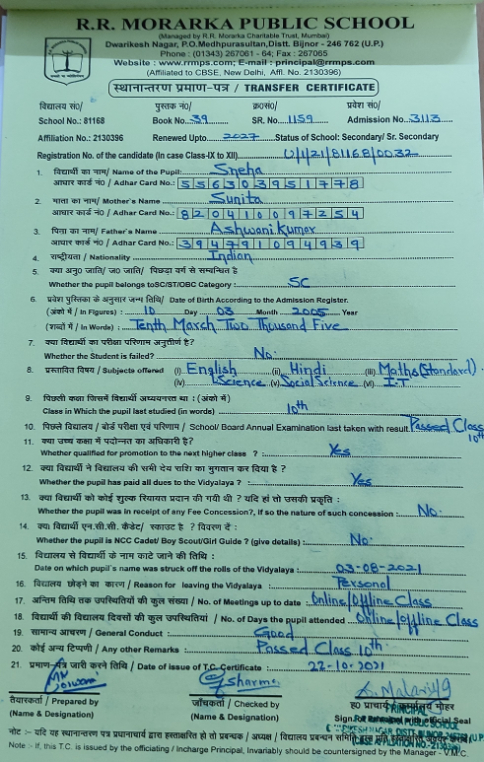 R.R. MORARKA PUBLIC SCHOOL
(Managed by R.R. Morarka Charitable Trust, Mumbai)
Dwarikesh Nagar, P.O.Medhpurasultan,Distt. Bijnor - 246 762 (U.P.)
Phone : (01343) 267061 - 64; Fax : 267065
Website : www.rrmps.com; E-mail : principal@rrmps.com
(Affiliated to CBSE, New Delhi, Affl. No. 2130396)
स्थानान्तरण प्रमाण-पत्र / TRANSFER CERTIFICATE
विद्यालय सं०/ पुस्तक नं०/ क्र०सं०/ प्रवेश सं०/
School No.: 81168 Book No. 39 SR. No. 1159 Admission No. 3113
Affiliation No.: 2130396 Renewed Upto 2027 Status of School: Secondary/ Sr. Secondary
Registration No. of the candidate (In case Class-IX to XII) U/1/21/81168/0032
1. विद्यार्थी का नाम/ Name of the Pupil: Sneha
आधार कार्ड नं०/ Adhar Card No.: 556303951778
2. माता का नाम/ Mother's Name Sunita
आधार कार्ड नं०/ Adhar Card No.: 820410097254
3. पिता का नाम/ Father's Name Ashwani Kumar
आधार कार्ड नं०/ Adhar Card No.: 394791094939
4. राष्ट्रीयता / Nationality Indian
5. क्या अनु० जाति/ ज० जाति/ पिछड़ा वर्ग से सम्बन्धित है
Whether the pupil belongs toSC/ST/OBC Category : SC
6. प्रवेश पुस्तिका के अनुसार जन्म तिथि/ Date of Birth According to the Admission Register.
(अंको में / In Figures) : 10 Day 03 Month 2005 Year
(शब्दों में / In Words) : Tenth March Two Thousand Five
7. क्या विद्यार्थी का परीक्षा परिणाम अनुतीर्ण है?
Whether the Student is failed? No.
8. प्रस्तावित विषय / Subjects offered (i) English (ii) Hindi (iii) Maths (Standard)
(iv) Science (v) Social Science (vi) I.T
9. पिछली कक्षा जिसमें विद्यार्थी अध्ययनरत था : (अंको में)
Class in Which the pupil last studied (in words) 10th
10. पिछले विद्यालय / बोर्ड परीक्षा एवं परिणाम / School/ Board Annual Examination last taken with result. Passed Class 10th
11. क्या उच्च कक्षा में पदोन्नत का अधिकारी है?
Whether qualified for promotion to the next higher class ? : Yes
12. क्या विद्यार्थी ने विद्यालय की सभी देय राशि का भुगतान कर दिया है ?
Whether the pupil has paid all dues to the Vidyalaya ? : Yes
13. क्या विद्यार्थी को कोई शुल्क रियायत प्रदान की गयी थी ? यदि हां तो उसकी प्रकृति :
Whether the pupil was in receipt of any Fee Concession?, if so the nature of such concession : No.
14. क्या विद्यार्थी एन.सी.सी. कैडेट/ स्काउट है ? विवरण दें :
Whether the pupil is NCC Cadet/ Boy Scout/Girl Guide ? (give details) : No.
15. विद्यालय से विद्यार्थी के नाम काटे जाने की तिथि :
Date on which pupil's name was struck off the rolls of the Vidyalaya : 03-08-2021
16. विद्यालय छोड़ने का कारण / Reason for leaving the Vidyalaya Personal
17. अन्तिम तिथि तक उपस्थितियों की कुल संख्या / No. of Meetings up to date : Online/Offline Class
18. विद्यार्थी की विद्यालय दिवसों की कुल उपस्थितियां / No. of Days the pupil attended Online/Offline Class
19. सामान्य आचरण / General Conduct : Good
20. कोई अन्य टिप्पणी / Any other Remarks : Passed Class 10th
21. प्रमाण-पत्र जारी करने तिथि / Date of issue of T.C. Certificate : 22-10-2021
तैयारकर्ता / Prepared by जाँचकर्ता / Checked by ह० प्राचार्य कार्यालय मोहर
(Name & Designation) (Name & Designation) Sign. of Principal with official Seal
PRINCIPAL
नोट :- यदि यह स्थानान्तरण पत्र प्रधानाचार्य द्वारा हस्ताक्षरित हो तो प्रबन्धक / अध्यक्ष / विद्यालय प्रबन्धन समिति
Note :- If, this T.C. is issued by the officiating / Incharge Principal, Invariably should be countersigned by the Manager - V.M.C.